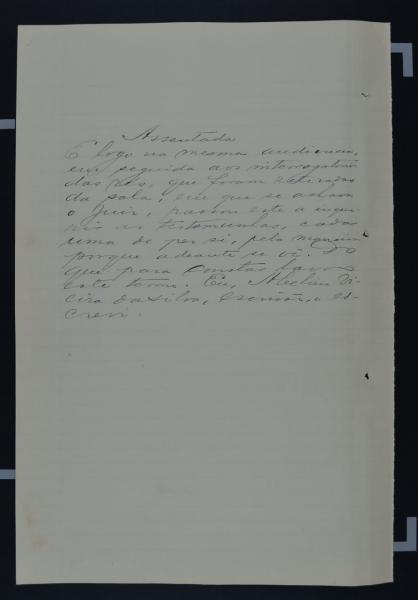 Assentada
E logo na mesma audiencia,
em seguida aos interrogatorios
dos réos, que foram retirados
da sala, em que se achava
o Juiz, passou este a inque-
rir as testemunhas, cada
uma de per si, pela maneira
porque adeante se vê. Do
que para constar lavro
este termo. Eu, Vi-
eira da Silva, escrivão, o es-
crevi.